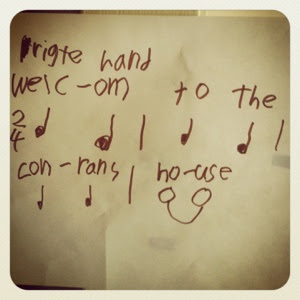 rigte hand
welc-om to the
2/4
con-rans ho-use